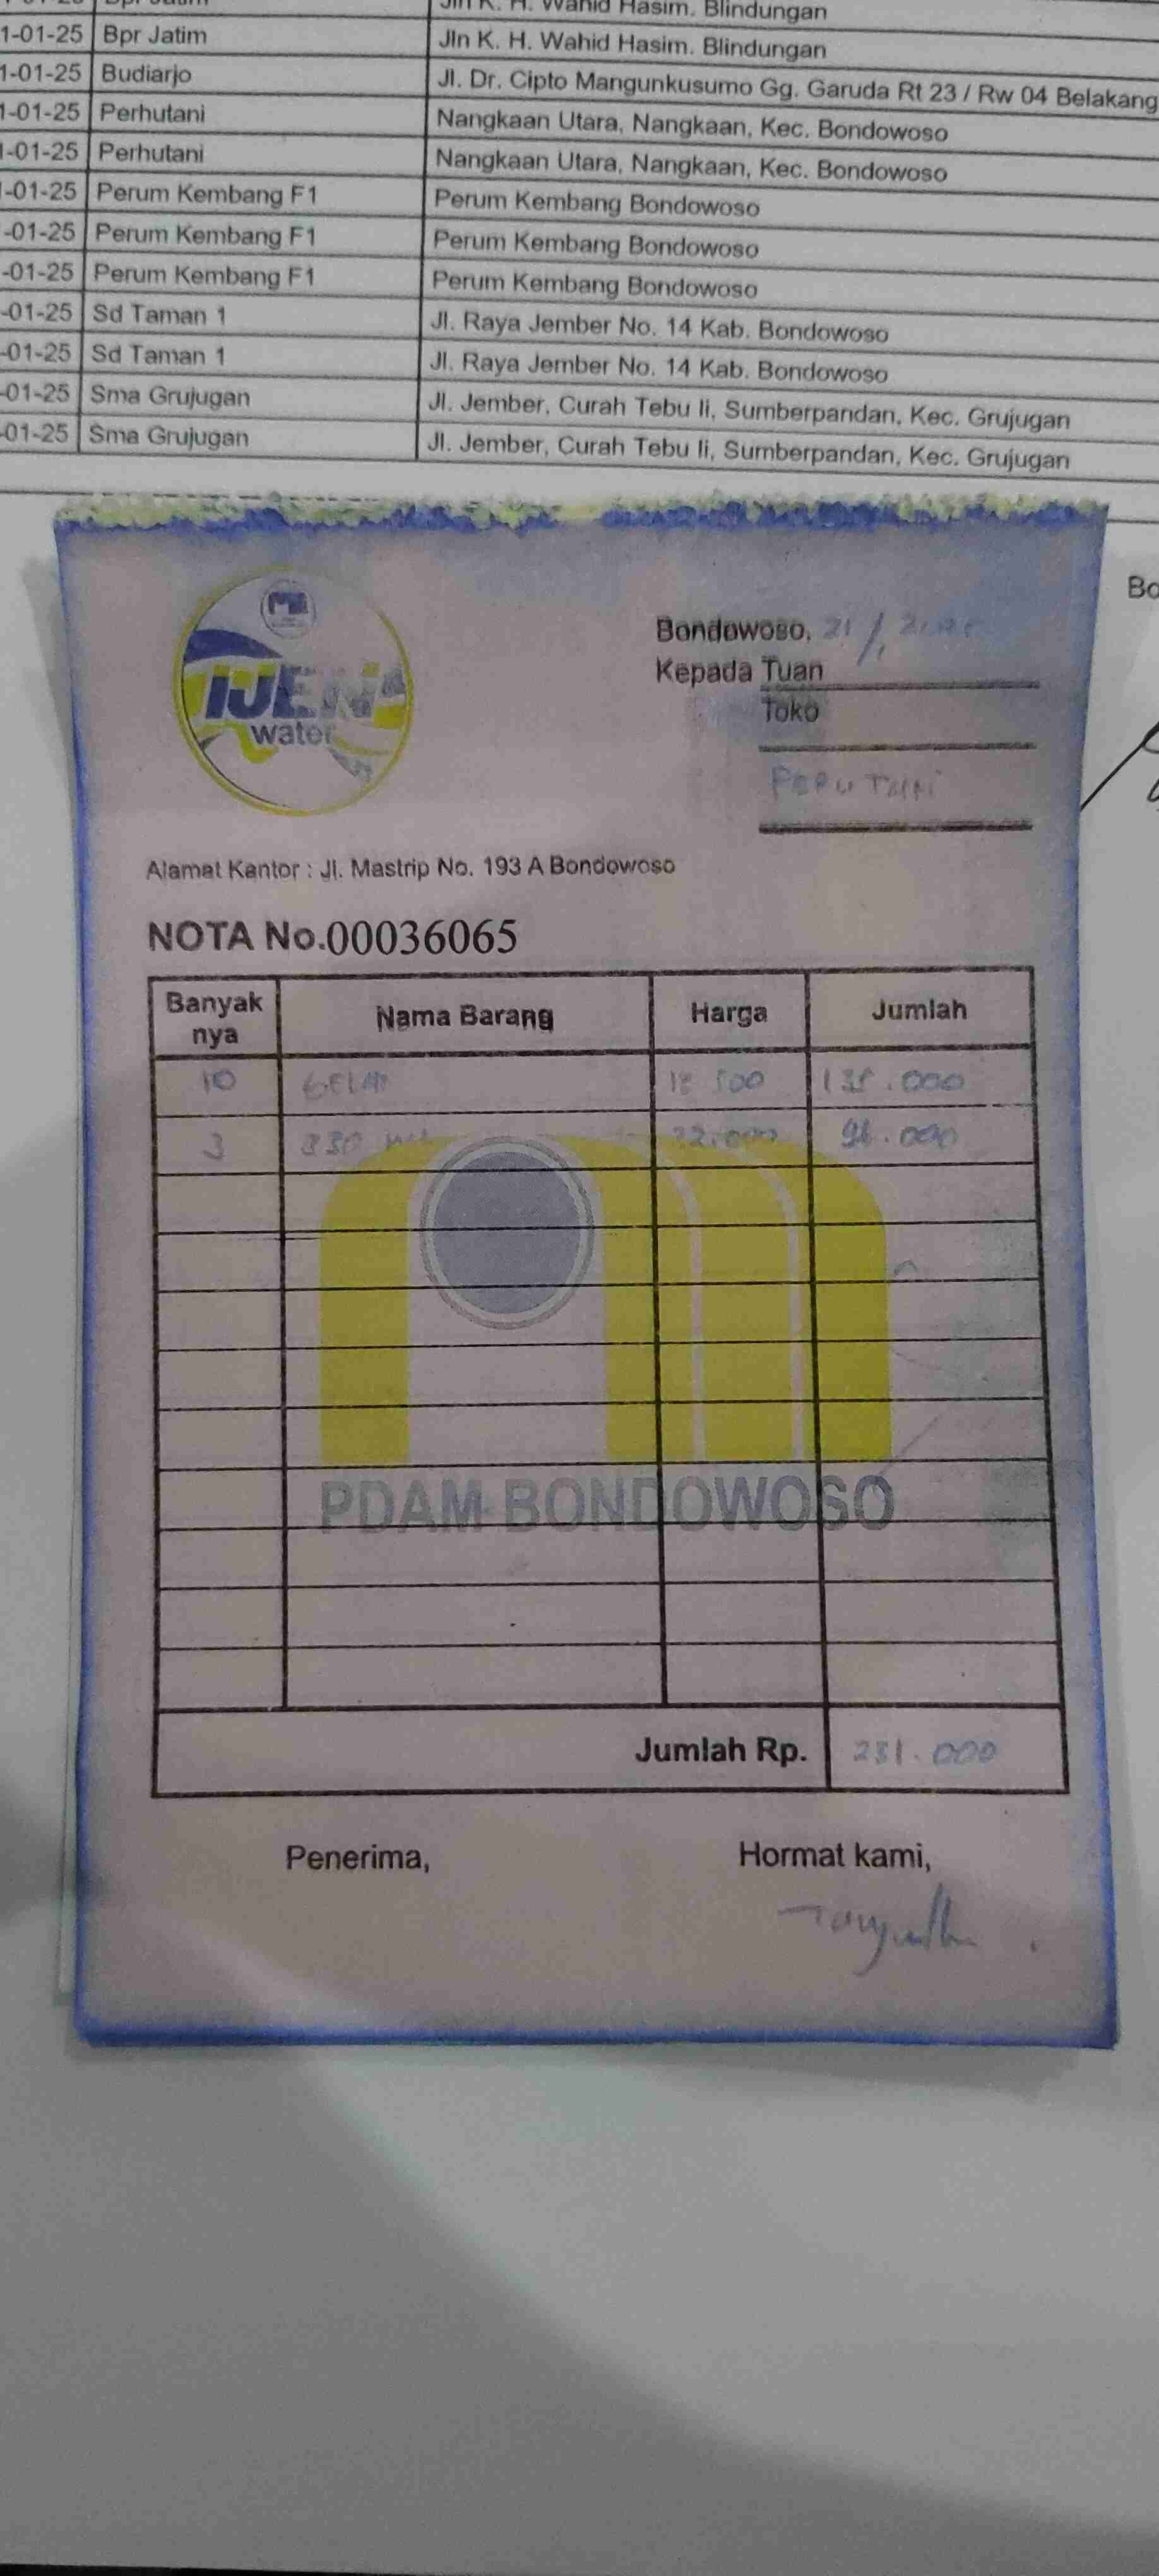 Jln K. H. Wahid Hasim. Blindungan
1-01-25 Bpr Jatim Jln K. H. Wahid Hasim. Blindungan
1-01-25 Budiarjo Jl. Dr. Cipto Mangunkusumo Gg. Garuda Rt 23 / Rw 04 Belakang
1-01-25 Perhutani Nangkaan Utara, Nangkaan, Kec. Bondowoso
-01-25 Perhutani Nangkaan Utara, Nangkaan, Kec. Bondowoso
-01-25 Perum Kembang F1 Perum Kembang Bondowoso
-01-25 Perum Kembang F1 Perum Kembang Bondowoso
-01-25 Perum Kembang F1 Perum Kembang Bondowoso
-01-25 Sd Taman 1 Jl. Raya Jember No. 14 Kab. Bondowoso
-01-25 Sd Taman 1 Jl. Raya Jember No. 14 Kab. Bondowoso
-01-25 Sma Grujugan Jl. Jember, Curah Tebu Ii, Sumberpandan, Kec. Grujugan
-01-25 Sma Grujugan Jl. Jember, Curah Tebu Ii, Sumberpandan, Kec. Grujugan
Bo
IJEN
water
Bondowoso,
Kepada Tuan
Toko
Alamat Kantor : Jl. Mastrip No. 193 A Bondowoso
NOTA No.00036065
Banyak nya Nama Barang Harga Jumlah
10 GELAS 135.000
3 330 ml 32.000 96.000
PDAM BONDOWOSO
Jumlah Rp. 231.000
Penerima, Hormat kami,